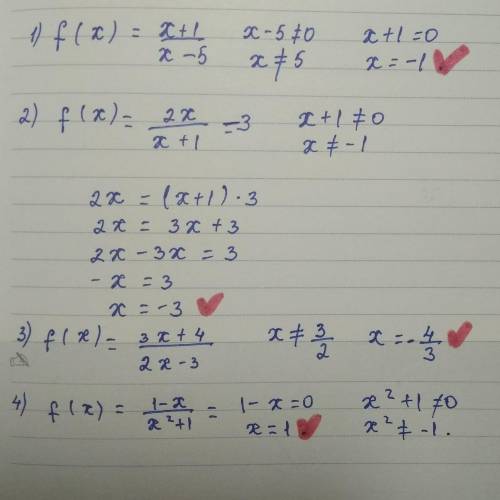 1) f(x) = x+1/x-5   x-5≠0   x+1=0
x≠5   x=-1
2) f(x) = 2x/x+1 -3   x+1≠0
x≠-1
2x = (x+1)·3
2x = 3x+3
2x-3x = 3
-x = 3
x = -3
3) f(x) = 3x+4/2x-3   x≠3/2   x=-4/3
4) f(x) = 1-x/x²+1 =   1-x=0   x²+1≠0
x=1   x²≠-1.